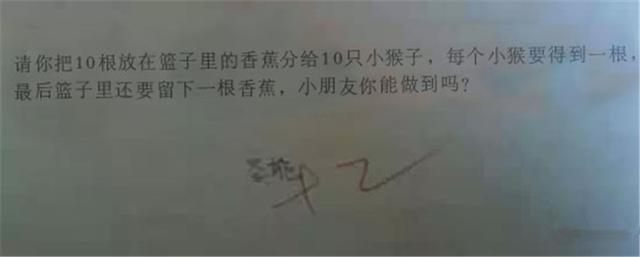 请你把10根放在篮子里的香蕉分给10只小猴子，每个小猴要得到一根，
最后篮子里还要留下一根香蕉，小朋友你能做到吗？